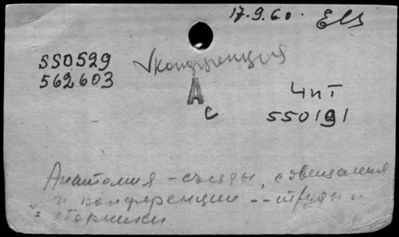 17-9.60.
550529
562603
конференция
А
с
Чит
550191
Анатомия - съезды, совещания
и конференции -- труды и
сборники